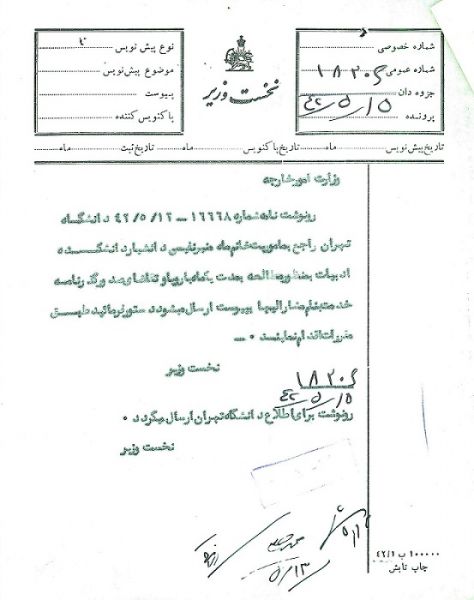 شماره خصوصی
شماره عمومی ۱۸۲۰۶
جزوه دان
پرونده ۴۲/۵/۱۵
نخست وزیر
نوع پیش نویس
موضوع پیش‌نویس
پیوست
پاکنویس کننده
تاریخ پیش نویس ماه تاریخ پاکنویس ماه تاریخ ثبت ماه
وزارت امور خارجه
رونوشت نامه شماره ۱۶۶۶۸ ــ ۴۲/۵/۱۲ دانشگاه
تهران راجع بماموریت خانم مه منیر نفیسی دانشیار دانشکده
ادبیات بمنظور مطالعه بمدت یکماه باروپا و تقاضای صدور گذرنامه
خدمت بنام مشارالیها بپیوست ارسال میشود دستور فرمائید طبق
مقررات اقدام نمایند ۰ ــ
نخست وزیر
۱۸۲۰۶
۴۲/۵/۱۵
رونوشت برای اطلاع دانشگاه تهران ارسال میگردد ۰
نخست وزیر
۵/۱۳
۱۰۰۰۰۰ ب ۴۲/۱
چاپ تابش